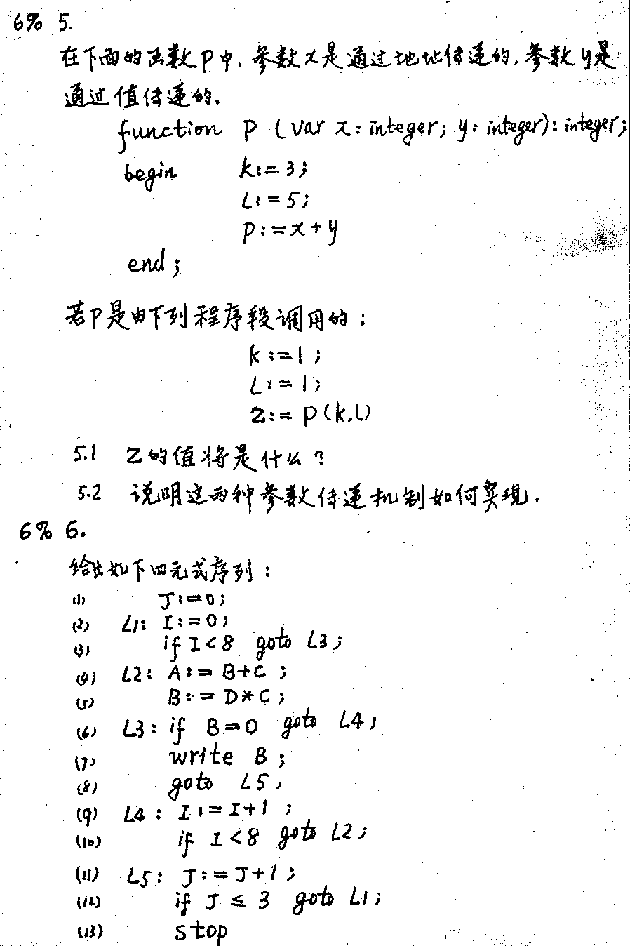 6% 5.
在下面的函数P中,参数x是通过地址传递的,参数y是
通过值传递的.
function P (var x: integer; y: integer): integer;
begin k:=3;
L:=5;
P:=x+y
end;
若P是由下列程序段调用的:
k:=1;
L:=1;
Z:=P(k,L)
5.1 Z的值将是什么?
5.2 说明这两种参数传递机制如何实现.
6% 6.
给出如下四元式序列:
(1) J:=0;
(2) L1: I:=0;
(3) if I<8 goto L3;
(4) L2: A:=B+C;
(5) B:=D*C;
(6) L3: if B=0 goto L4;
(7) write B;
(8) goto L5;
(9) L4: I:=I+1;
(10) if I<8 goto L2;
(11) L5: J:=J+1;
(12) if J≤3 goto L1;
(13) stop